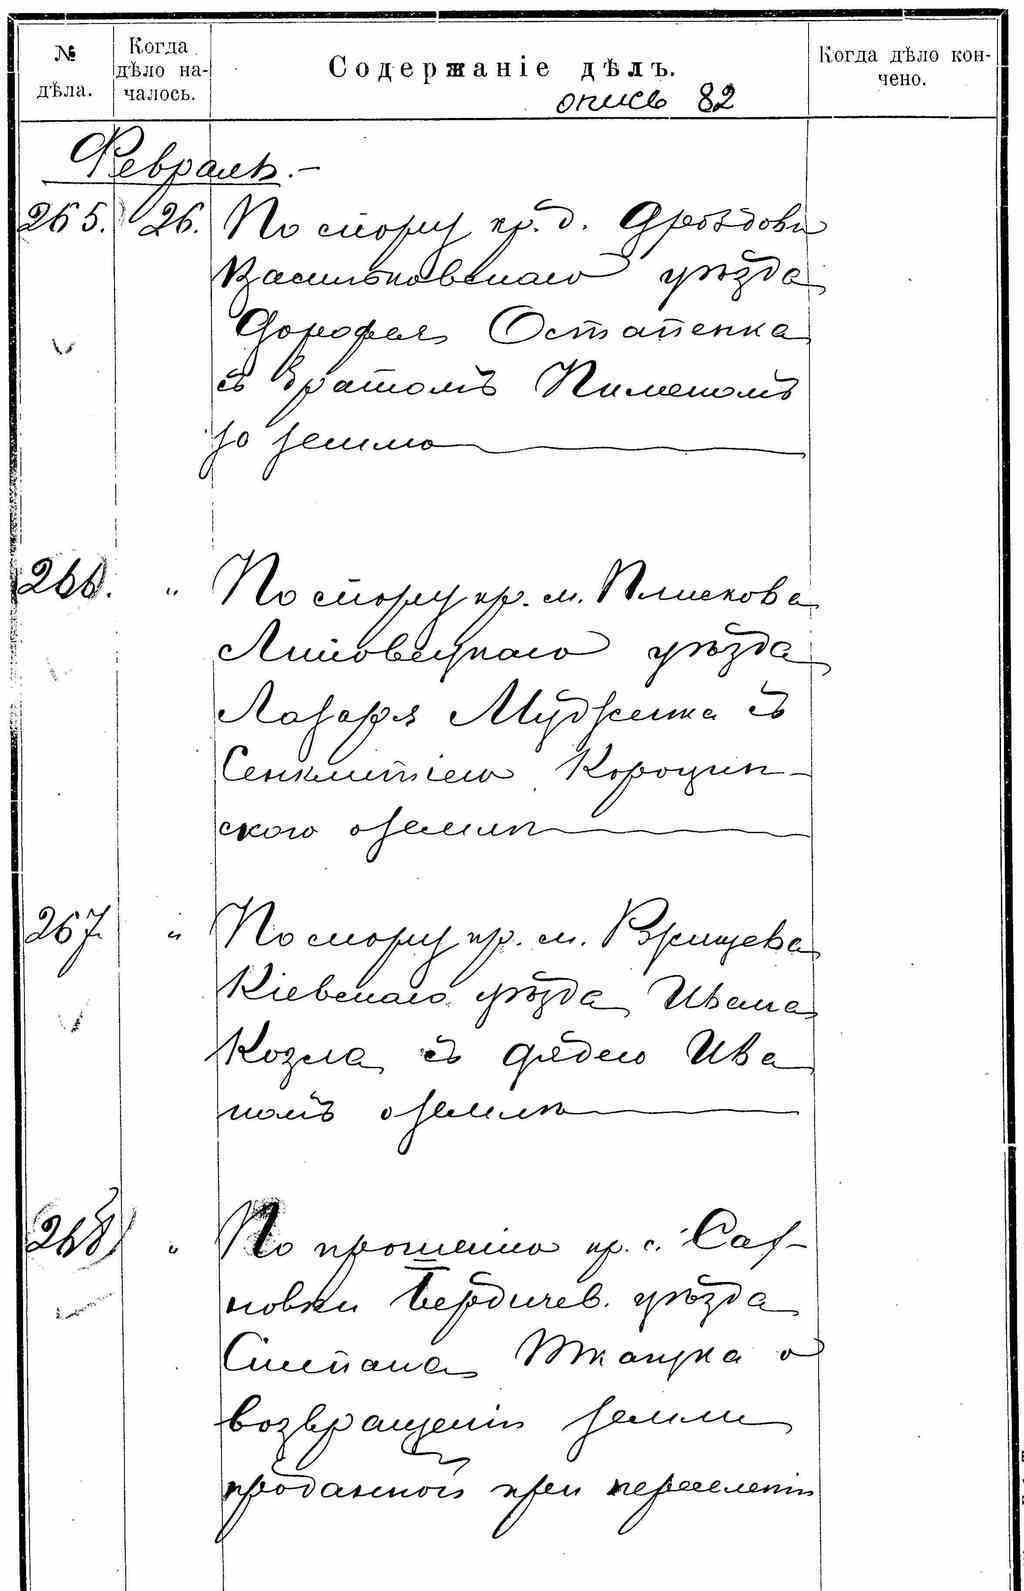 № дѣла.
Когда дѣло на-
чалось.
Содержаніе дѣлъ.
Когда дѣло кон-
чено.
опись 82
Февраль.-
265. 26. По спору кр. д. Дроздовки
Васильковскаго уѣзда
Дорофея Остапенка
съ братомъ Пименомъ
за землю
266. " По спору кр. м. Плискова
Липовецкаго уѣзда
Лазаря Мудженка съ
Сенклитіею
ского о землѣ
267. " По спору кр. м.
Кіевскаго уѣзда Ивана
Козла съ дядею Ива
номъ о землѣ
268. " По прошенію кр. с. Саж-
новки Бердичев. уѣзда
Степана Ткачука о
возвращеніи земли
проданной при переселеніи